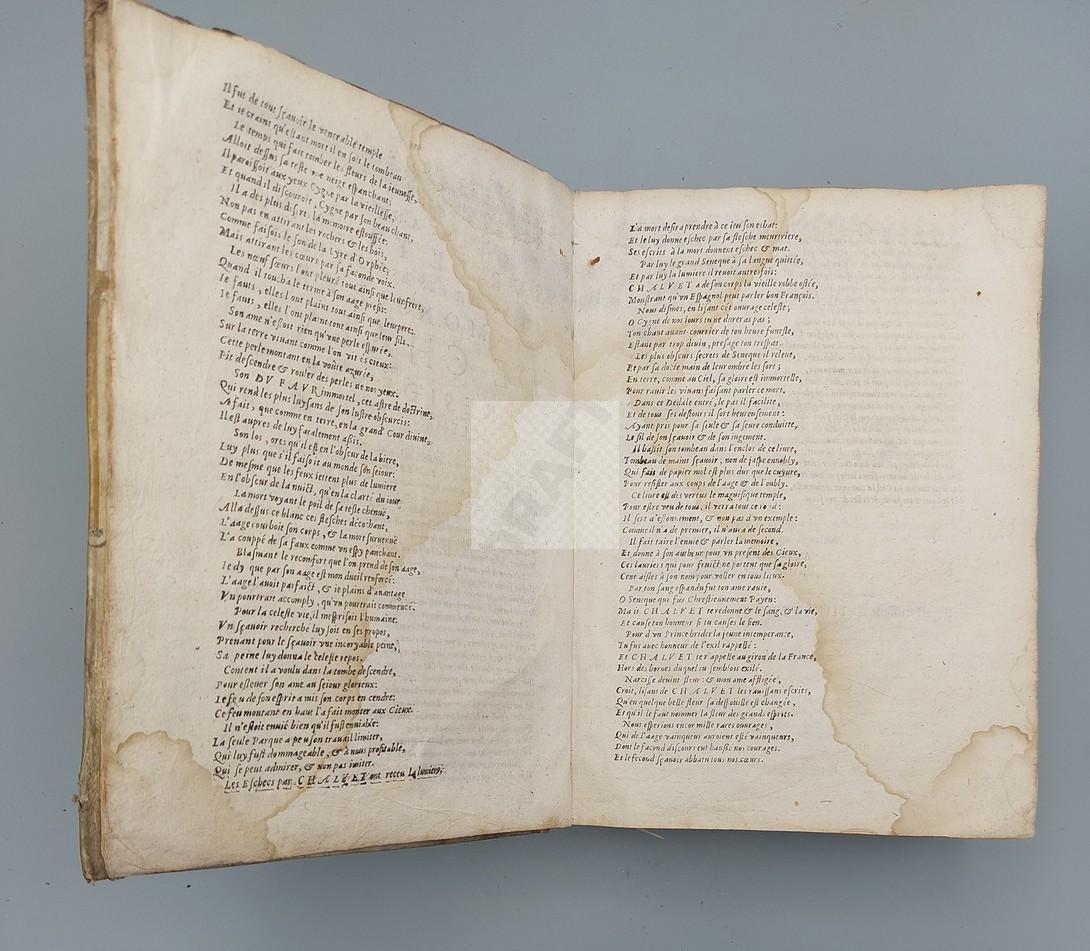 Il fut de tout sçauoir le venerable temple
Et ie crains qu'estant mort il en soit le tombeau
Le temps qui fait tomber les fleurs de la ieunesse,
Alloit dessus sa teste vne neige espanchant.
Il paroissoit aux yeux Cygne par la vieillesse,
Et quand il discouroit, Cygne par son beau chant,
Il a des plus disers la memoire estouffée:
Non pas en attirant les rochers & les bois,
Comme faisois le son de la Lyre d'Orphée;
Mais attirant les cœurs par sa faconde voix.
Les neuf sœurs l'ont pleuré tout ainsi que leur frere,
Quand il toucha le terme à son aage prefis:
Ie fauts, elles l'ont plaint tout ainsi que leur pere:
Ie fauts, elles l'ont plaint tout ainsi que leur fils.
Son ame n'estoit rien qu'vne perle espurée,
Sur la terre viuant comme l'on vit és cieux:
Cette perle montant en la voûte azurée,
Fit descendre & rouler des perles de nos yeux.
Son DV FAVR immortel, cet astre de doctrine,
Qui rend les plus luysans de son lustre obscurcis:
A fait, que comme en terre, en la grand' Cour diuine,
Il est aupres de luy faralement assis.
Son los, ores qu'il est en l'obscur de la biere,
Luy plus que s'il faisoit au monde son seiour:
De mesme que les feux iettent plus de lumiere
En l'obscur de la nuict, qu'en la clarté du iour
La mort voyant le poil de sa teste chenuë,
Alla dessus ce blanc ces flesches décochant,
L'aage courboit son corps, & la mort suruenuë
L'a couppé de sa faux comme vn espy panchant.
Blasmant le reconfort que l'on prend de son aage,
Ie dy que par son aage est mon dueil renforcé:
L'aage l'auoit parfaict, & ie plains d'auantage
Vn pourtrait accomply, qu'vn pourtrait commencé.
Pour la celeste vie, il mesprisoit l'humaine:
Vn sçauoir recherché luy soit en ses propos,
Prenant pour le sçauoir vne incroyable peine,
Sa peine luy donna le celeste repos.
Content il a voulu dans la tombe descendre,
Pour esleuer son ame au seiour glorieux:
Le feu de son esprit a mis son corps en cendre:
Ce feu montant en haut l'a fait monter aux Cieux.
Il n'estoit enuié bien qu'il fust enuiable:
La seule Parque a peu son trauail limiter,
Qui luy fust dommageable, & à nous profitable,
Qui se peut admirer, & non pas imiter.
Les Eschecs par CHALVET ont receu la lumiere;
La mort desir aprendre à ce ieu son esbat:
Et le luy donne eschec par sa flesche meurtriere,
Ses escrits à la mort donnent eschec & mat.
Par luy le grand Seneque à sa langue quittée,
Et par luy la lumiere il reuoit autresfois:
CHALVET a de son corps la vieille robbe ostée,
Monstrant qu'vn Espagnol peut parler bon François.
Nous dismes, en lisant cet ouurage celeste;
O Cygne de nos iours tu ne dureras pas;
Ton chant auant-courrier de ton heure funeste,
Estant par trop diuin, presage ton trespas.
Les plus obscurs secrets de Seneque il releue,
Et par sa docte main de leur ombre les sort;
En terre, comme au Ciel, sa gloire est immortelle,
Pour rauir les viuans faisant parler ce mort.
Dans ce Dedale entré, le pas il facilite,
Et de tous ses destours il sort heureusement:
Ayant pris pour sa seule & sa seure conduitte,
Le fil de son sçauoir & de son iugement.
Il bastit son tombeau dans l'enclos de ce liure,
Tombeau de maint sçauoir, non de jaspe ennobly,
Qui fait de papier mol est plus dur que le cuyure,
Pour resister aux coups de l'aage & de l'oubly.
Ce liure est des vertus le magnifique temple,
Pour estre veu de tous, il verra tout ce rond:
Il sert d'estonnement, & non pas d'vn exemple:
Comme il n'a de premier, il n'aura de second.
Il fait taire l'enuie & parler la memoire,
Et donne à son autheur pour vn present des Cieux,
Ces lauriers qui pour fruict ne portent que sa gloire,
Cent aisles à son nom pour voller en tous lieux.
Par ton sang espandu fut ton ame rauie,
O Seneque qui fus Chrestiennement Payen:
Mais CHALVET te redonne & le sang, & la vie,
Et cause ton bonheur si tu causes le sien.
Pour d'vn Prince brider la jeune intemperance,
Tu fus auec honneur de l'exil rappellé:
Et CHALVET te r'appelle au giron de la France,
Hors des bornes duquel tu semblois exilé.
Narcisse deuint fleur: & mon ame affligée,
Croit, lisant de CHALVET les rauissans escrits,
Qu'en quelque belle fleur sa despoüille est changée,
Et qu'il le faut nommer la fleur des grands esprits.
Nous esperions encor mille rares ouurages,
Qui de l'aage vainqueur auroient esté vainqueurs,
Dont le facond discours eut haussé nos courages.
Et le fecond sçauoir abbatu tous nos cœurs.
DRAFT